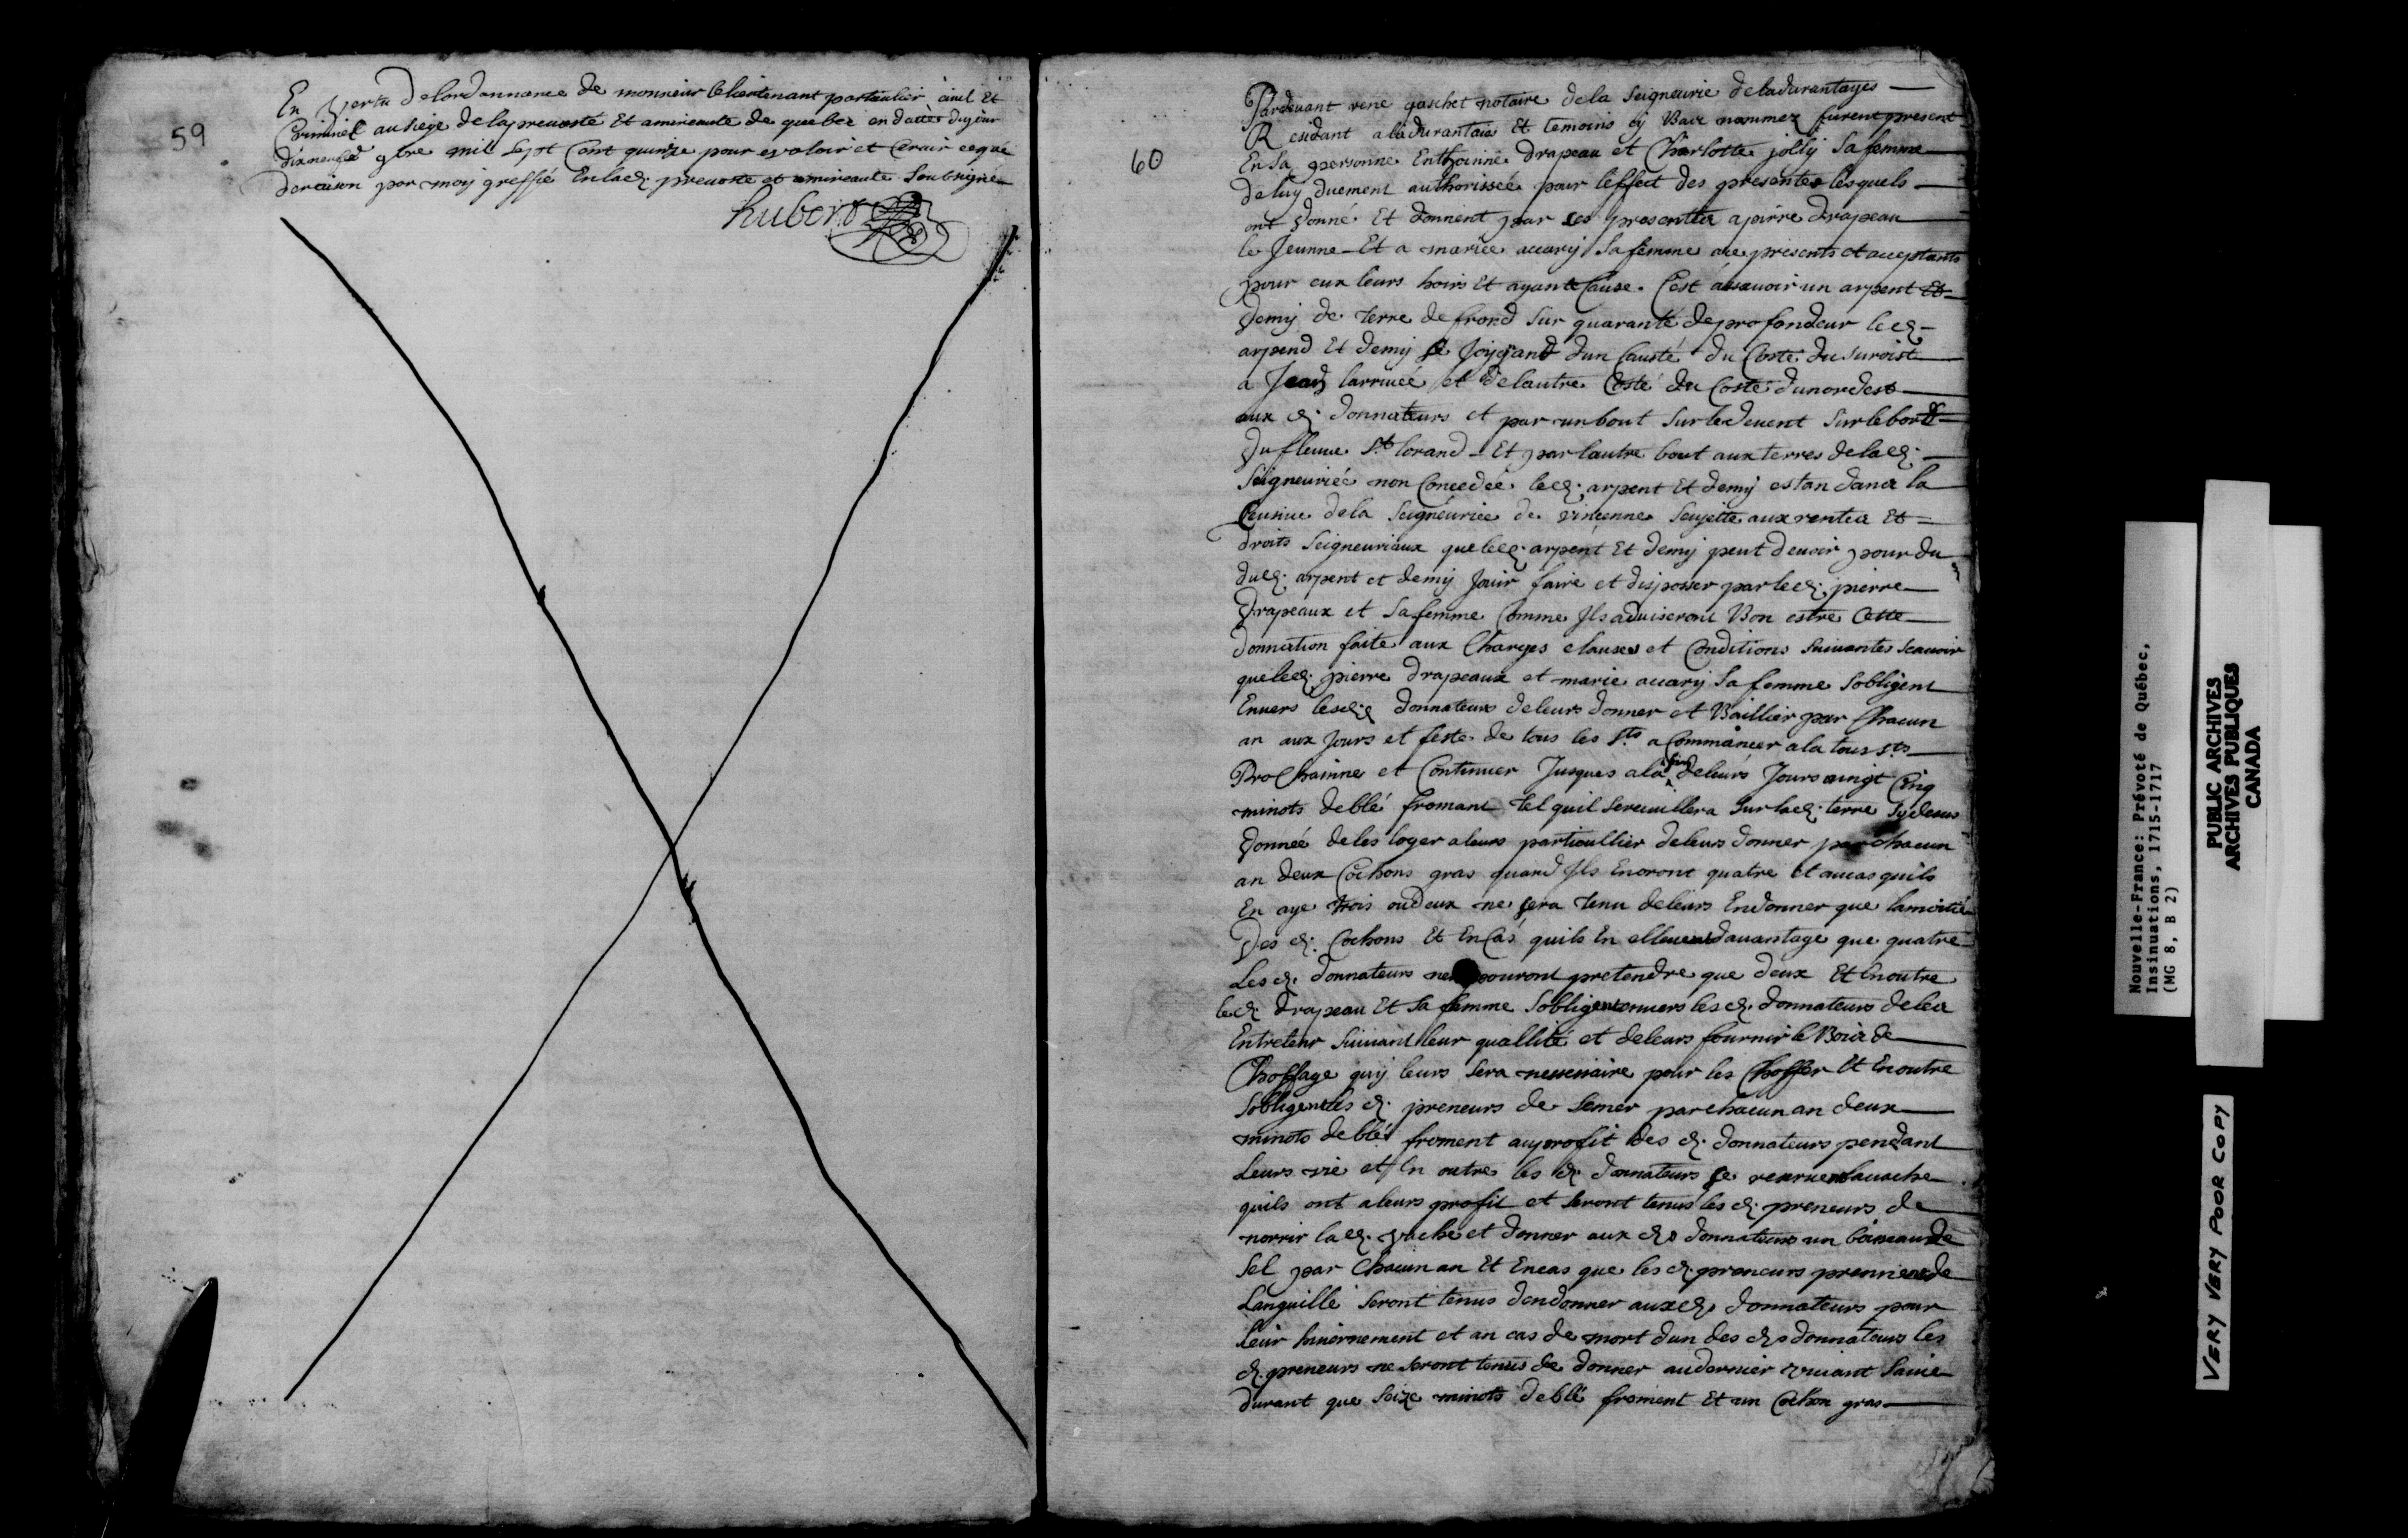 59
En vertu de lordonnance de monsieur le lieutenant particulier ciuil Et
Criminel au siege de la preuosté Et amireauté de quebec en datte du jour
dixneuf 9bre mil sept Cent quinze pour es valoir et seruir ce que
de raison par moy greffié En lad. preuosté et amireauté Soubsigné
hubert
60
Pardeuant rené gaschet notaire de la Seigneurie de ladurantayes
Residant a ladurantaie Et temoins cy Bas nommez furent present
En Sa personne Enthoinne Drapeau et Charlotte jolly Sa femme
de luy duement authorissée pour l'effect des presentes lesquels
ont donné Et donnent par ces presentes a pierre drapeau
le Jeunne Et a mariee accary Sa femme ace presents et acceptants
pour eux leurs hoirs Et ayant Cause. C'est assauoir un arpent Et
Demy de terre de frond Sur quarante de profondeur led.
arpend Et demy Se Joignant dun Causté du Costé du suroist
a Jean larriueé et de lautre Costé du Costé du nordest
aux d. donnateurs et par un bout Sur le deuent Sur le bord
Du fleuue St. lorand Et par lautre bout aux terres de lad.
Seigneuriée non Concedée led. arpent Et demy estan dans la
Censiue de la Seigneuriee de vincenne Seujette aux rentes Et
droits Seigneuriaux que led. arpent Et demy peut deuoir pour du
dud. arpent et demy Jouir faire et disposser par led. pierre
Drapeaux et Sa femme Comme Ils aduiseront Bon estre Cette
donnation faite aux Charges clauses et Conditions Suiuantes Scauoir
que led. pierre drapeaux et marie accary Sa femme Sobligent
Enuers lesd. donnateurs de leurs donner et Baillier par Chacun
an aux Jours et feste de tous les Sts a Commancer a la tous Sts
ProChainne et Continuer Jusques a la fin de leurs Jours vingt Cinq
minots de blé fromant tel quil Sereuillera Sur lad. terre Sy desus
Donnée de les loger a leurs particullier de leurs donner par chacun
an deux Cochons gras quand Ils En oront quatre et au cas quils
En aye trois ou deux ne Sera tenu de leurs En donner que la moitié
Des d. Cochons Et En Cas quils En elleuent dauantage que quatre
Les d. donnateurs ne pouront pretendre que deux Et En outre
le d. drapeau Et Sa femme Sobligent enuers les d. donnateurs de les
Entretenir Suiuant leur quallité et de leurs fournir le Bois de
Choffage quy leurs Sera nessessaire pour les Choffer Et En outre
Sobligent les d. preneurs de Semer par chacun an deux
minots de blé froment au profit des d. donnateurs pendant
Leurs vie et En outre les d. donnateurs Se reseruent la vache
quils ont a leurs profit et Seront tenus les d. preneurs de
norrir lad. vache et donner aux ds donnateurs un boisseau de
Sel par Chacun an Et En cas que les d. preneurs prennient de
Languille Seront tenus den donner aux d. donnateurs pour
leur hiuernement et an cas de mort dun des ds donnateurs les
d. preneurs ne Seront tenus de donner au dernier viuant Sa vie
durant que Seize minots de blé froment Et un Cochon gras
Nouvelle-France: Prévoté de Québec,
Insinuations, 1715-1717
(MG 8, B 2)
PUBLIC ARCHIVES
ARCHIVES PUBLIQUES
CANADA
VERY VERY POOR COPY